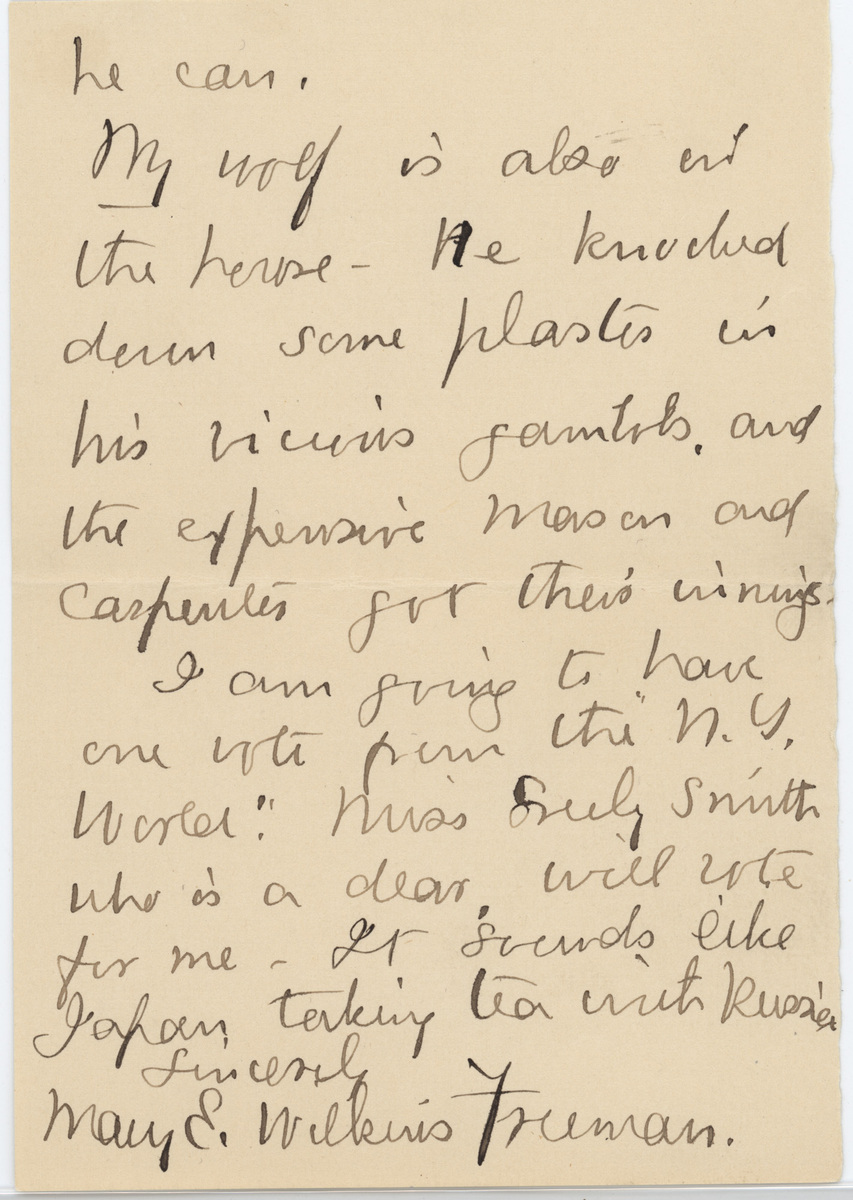 he can.
My wolf is also in
the house - He knocked
down some plaster in
his vicious gambols, and
the expensive mason and
carpenter got their innings.
I am going to have
one vote from the "N. Y.
World". Miss Greely Smith
who is a dear, will vote
for me - It sounds like
Japan taking tea with Russia
Sincerely
Mary E. Wilkins Freeman.